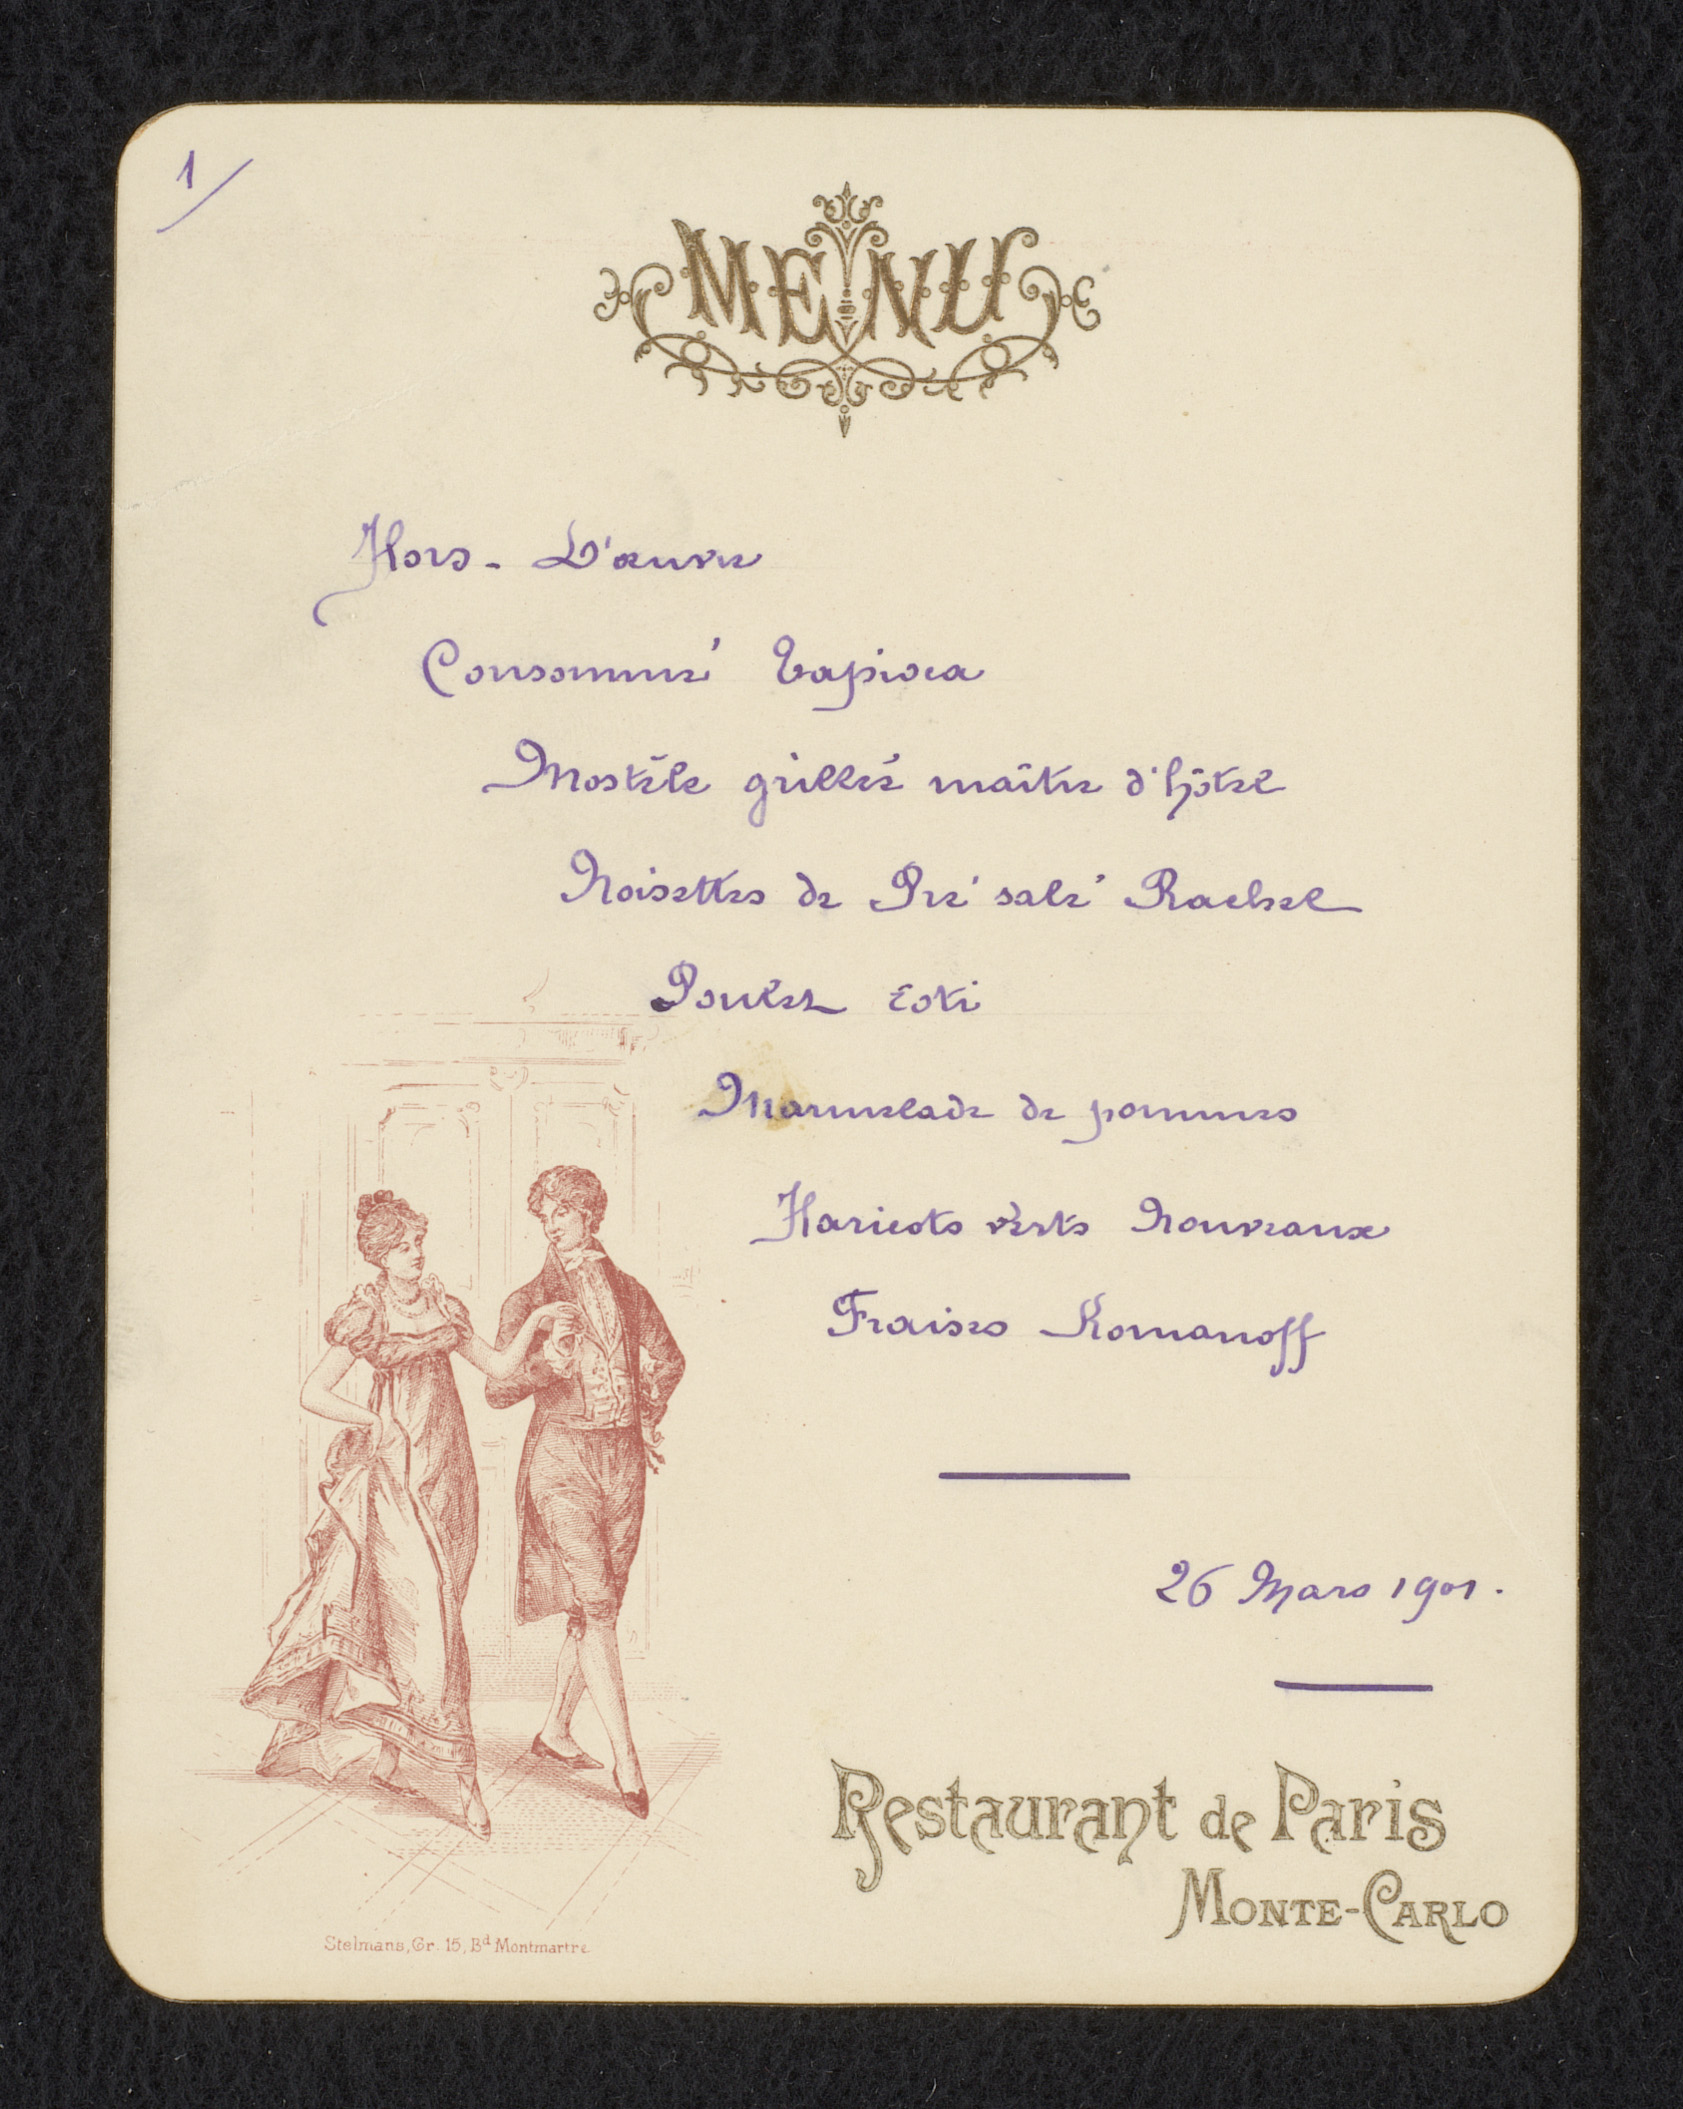 1/
MENU
Hors-D'œuvre
Consommé Tapioca
Mostèle grillée maître d'hôtel
Noisettes de Pré salé Rachel
Poulet rôti
Marmelade de pommes
Haricots verts Nouveaux
Fraises Romanoff
26 Mars 1901.
Restaurant de Paris
MONTE-CARLO
Stelmans, Gr. 15, Bd Montmartre